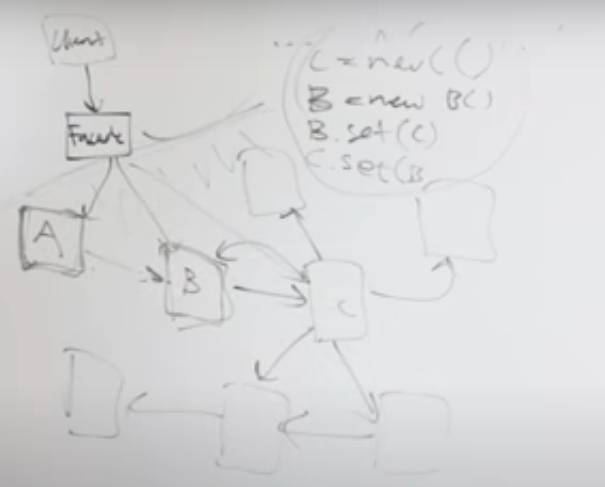 Client
Facade
C = new C()
B = new B()
B.set(C)
C.set(B
A
B
C